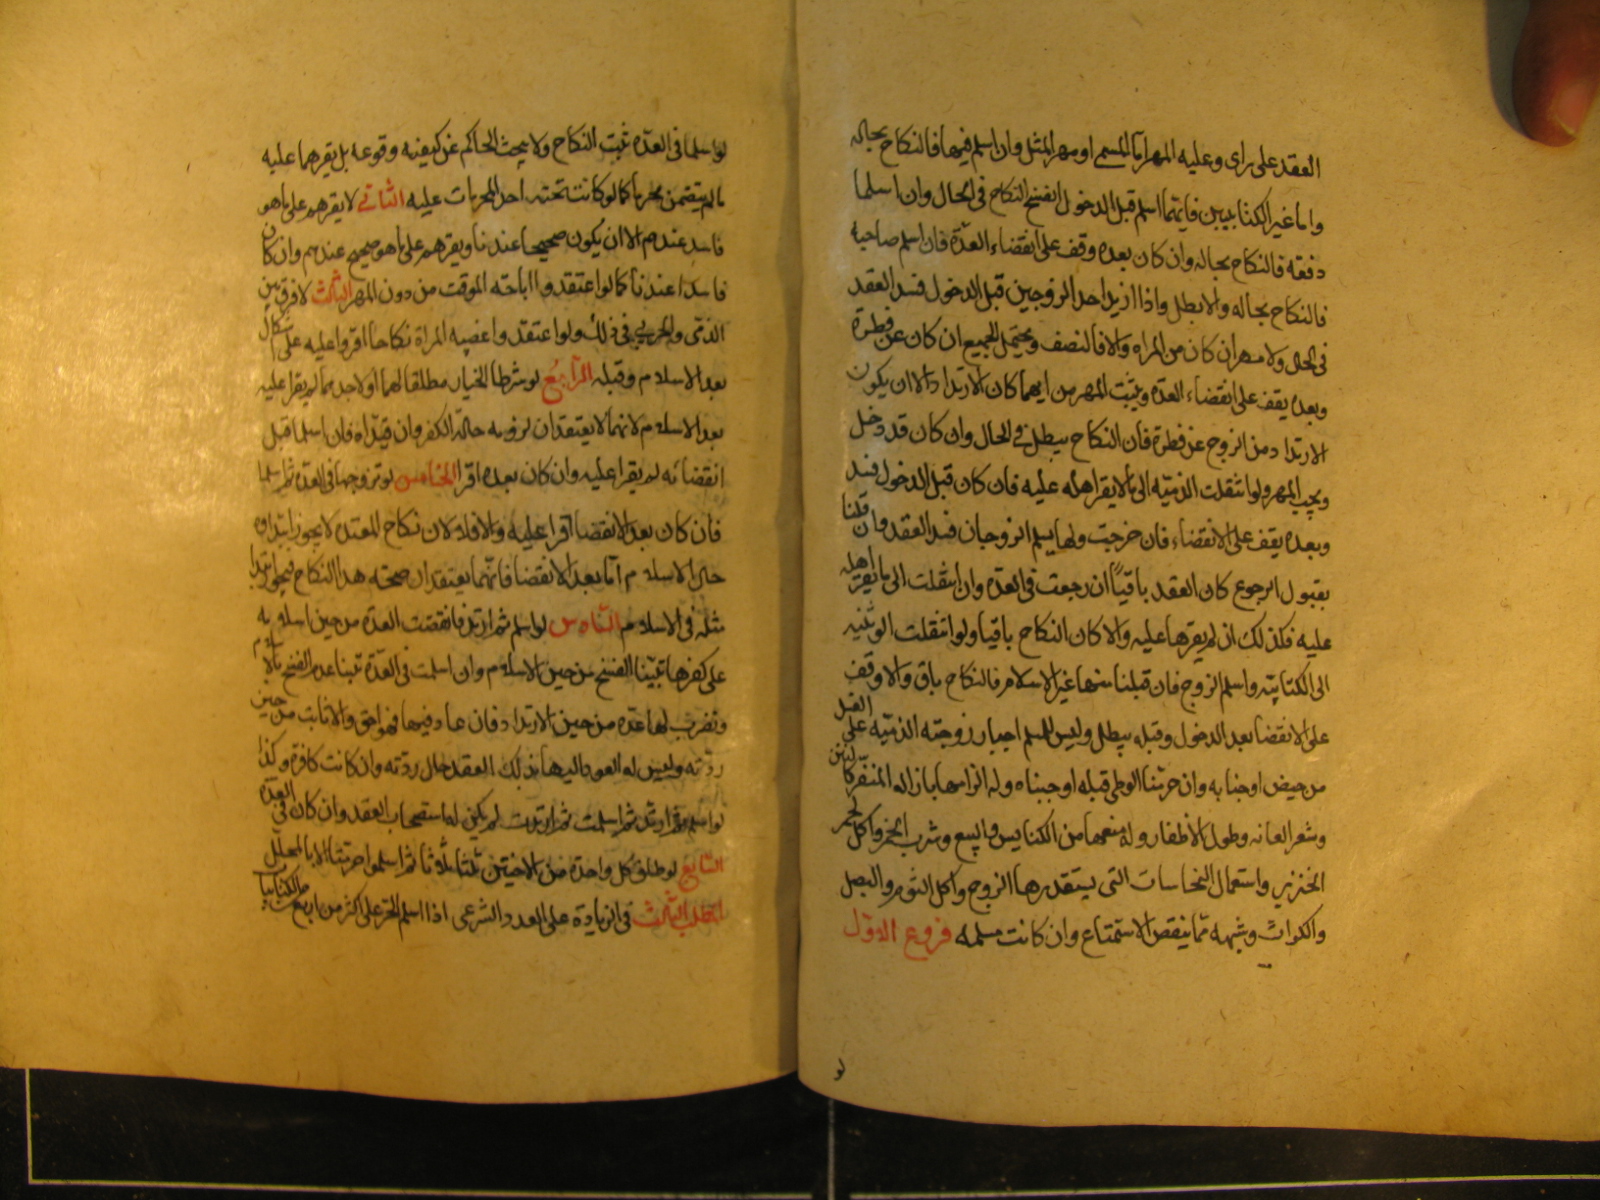 العقد على راى وعليه المهر اما المسمى او مهر المثل وان اسلم فيها فالنكاح بحاله
واما غير الكتابيين فايهما اسلم قبل الدخول انفسخ النكاح فى الحال وان اسلما
دفعه فالنكاح بحاله وان كان بعده وقف على انقضاء العدّة فان اسلم صاحبه
فالنكاح بحاله والا بطل واذا ارتد احد الزوجين قبل الدخول فسد العقد
فى الحال ولا مهر ان كان من المراه والا فالنصف ويحتمل الجميع ان كان عن فطرة
وبعده يقف على انقضاء العدّة ويثبت المهر من ايهما كان الارتداد الا ان يكون
الارتداد من الزوج عن فطرة فان النكاح يبطل فى الحال وان كان قد دخل
ويجب المهر ولو انتقلت الذميّه الى ما لا يقر اهله عليه فان كان قبل الدخول فسد
وبعده يقف على الانقضاء فان خرجت ولما يسلم الزوجان فسد العقد وان قلنا
بقبول الرجوع كان العقد باقياً ان رجعت فى العدّه وان انتقلت الى ما يقر اهله
عليه فكذلك ان لم يقرها عليه والا كان النكاح باقيا ولو انتقلت الوثنيه
الى الكتابيّه واسلم الزوج فان قبلنا منها غير الاسلام فالنكاح باق والا وقف
على الانقضا بعد الدخول وقبله يبطل وليس للمسلم اجبار زوجته الذميّه على الغسل
من حيض اوجنابه وان حرمنا الوطى قبله اوجبناه وله الزامها بازاله المنفّر كالنتن
وشعر العانه وطول الاظفار وله منعها من الكنايس والبيع وشرب الخمر واكل لحم
الخنزير واستعمال النجاسات التى يستقذرها الزوج واكل الثوم والبصل
والكراث وشبهه مما ينقص الاستمتاع وان كانت مسلمه فروع الاوّل
لو
لو اسلما فى العدّه ثبت النكاح ولا يبحث الحاكم عن كيفيه وقوعه بل يقرهما عليه
ما لم يتضمن محرما كما لو كانت تحته احد المحرمات عليه الثانى لا يقرهم على ما هو
فاسد عندهم الا ان يكون صحيحا عندنا ويقرهم على ما هو صحيح عندهم وان كان
فاسدا عندنا كما لو اعتقدوا اباحته الموقت من دون المهر الثالث لا فرق بين
الذمى والحربى فى ذلك ولو اعتقدوا غصبه المراة نكاحا اقروا عليه على اشكال
بعد الاسلام وقبله الرابع لو شرطا الخيار مطلقا لهما او لاحدهما لم يقرا عليه
بعد الاسلام لانهما لا يعتقدان لزومه حالة الكفر وان قيّداه فان اسلما قبل
انقضائه لم يقرا عليه وان كان بعده اقرا الخامس لو تزوجها فى العدّه ثم اسلما
فان كان بعد الانقضا اقرا عليه والا فلا لان نكاح المعتدة لا يجوز ابتداوه
حال الاسلام اما بعد الانقضا فانهما يعتقدان صحته هذا النكاح فيجوز ابتدا
مثله فى الاسلام السّادس لو اسلم ثم ارتد فانقضت العدّة من حين اسلامه
على كفرها تبيّنا الفسخ من حين الاسلام وان اسلمت فى العدّة تبينا عدم الفسخ بالاسلام
وتضرب لها عدّه من حين الارتداد فان عاد فيها فهو احق والا بانت من حين
ردّته وليس له العود اليها بذلك العقد حال ردّته وان كانت كافرة وكذا
لو اسلم ثم ارتد ثم اسلمت ثم ارتدت لم يكن له استصحاب العقد وان كان فى العدّة
السّابع لو طلق كل واحدة من الاختين ثلثا ثلاثا ثم اسلموا حرمتا الا بالمحلل
المطلب الثالث فى الزيادة على العدد الشرعى اذا اسلم الحر على اكثر من اربع من الكتابيات